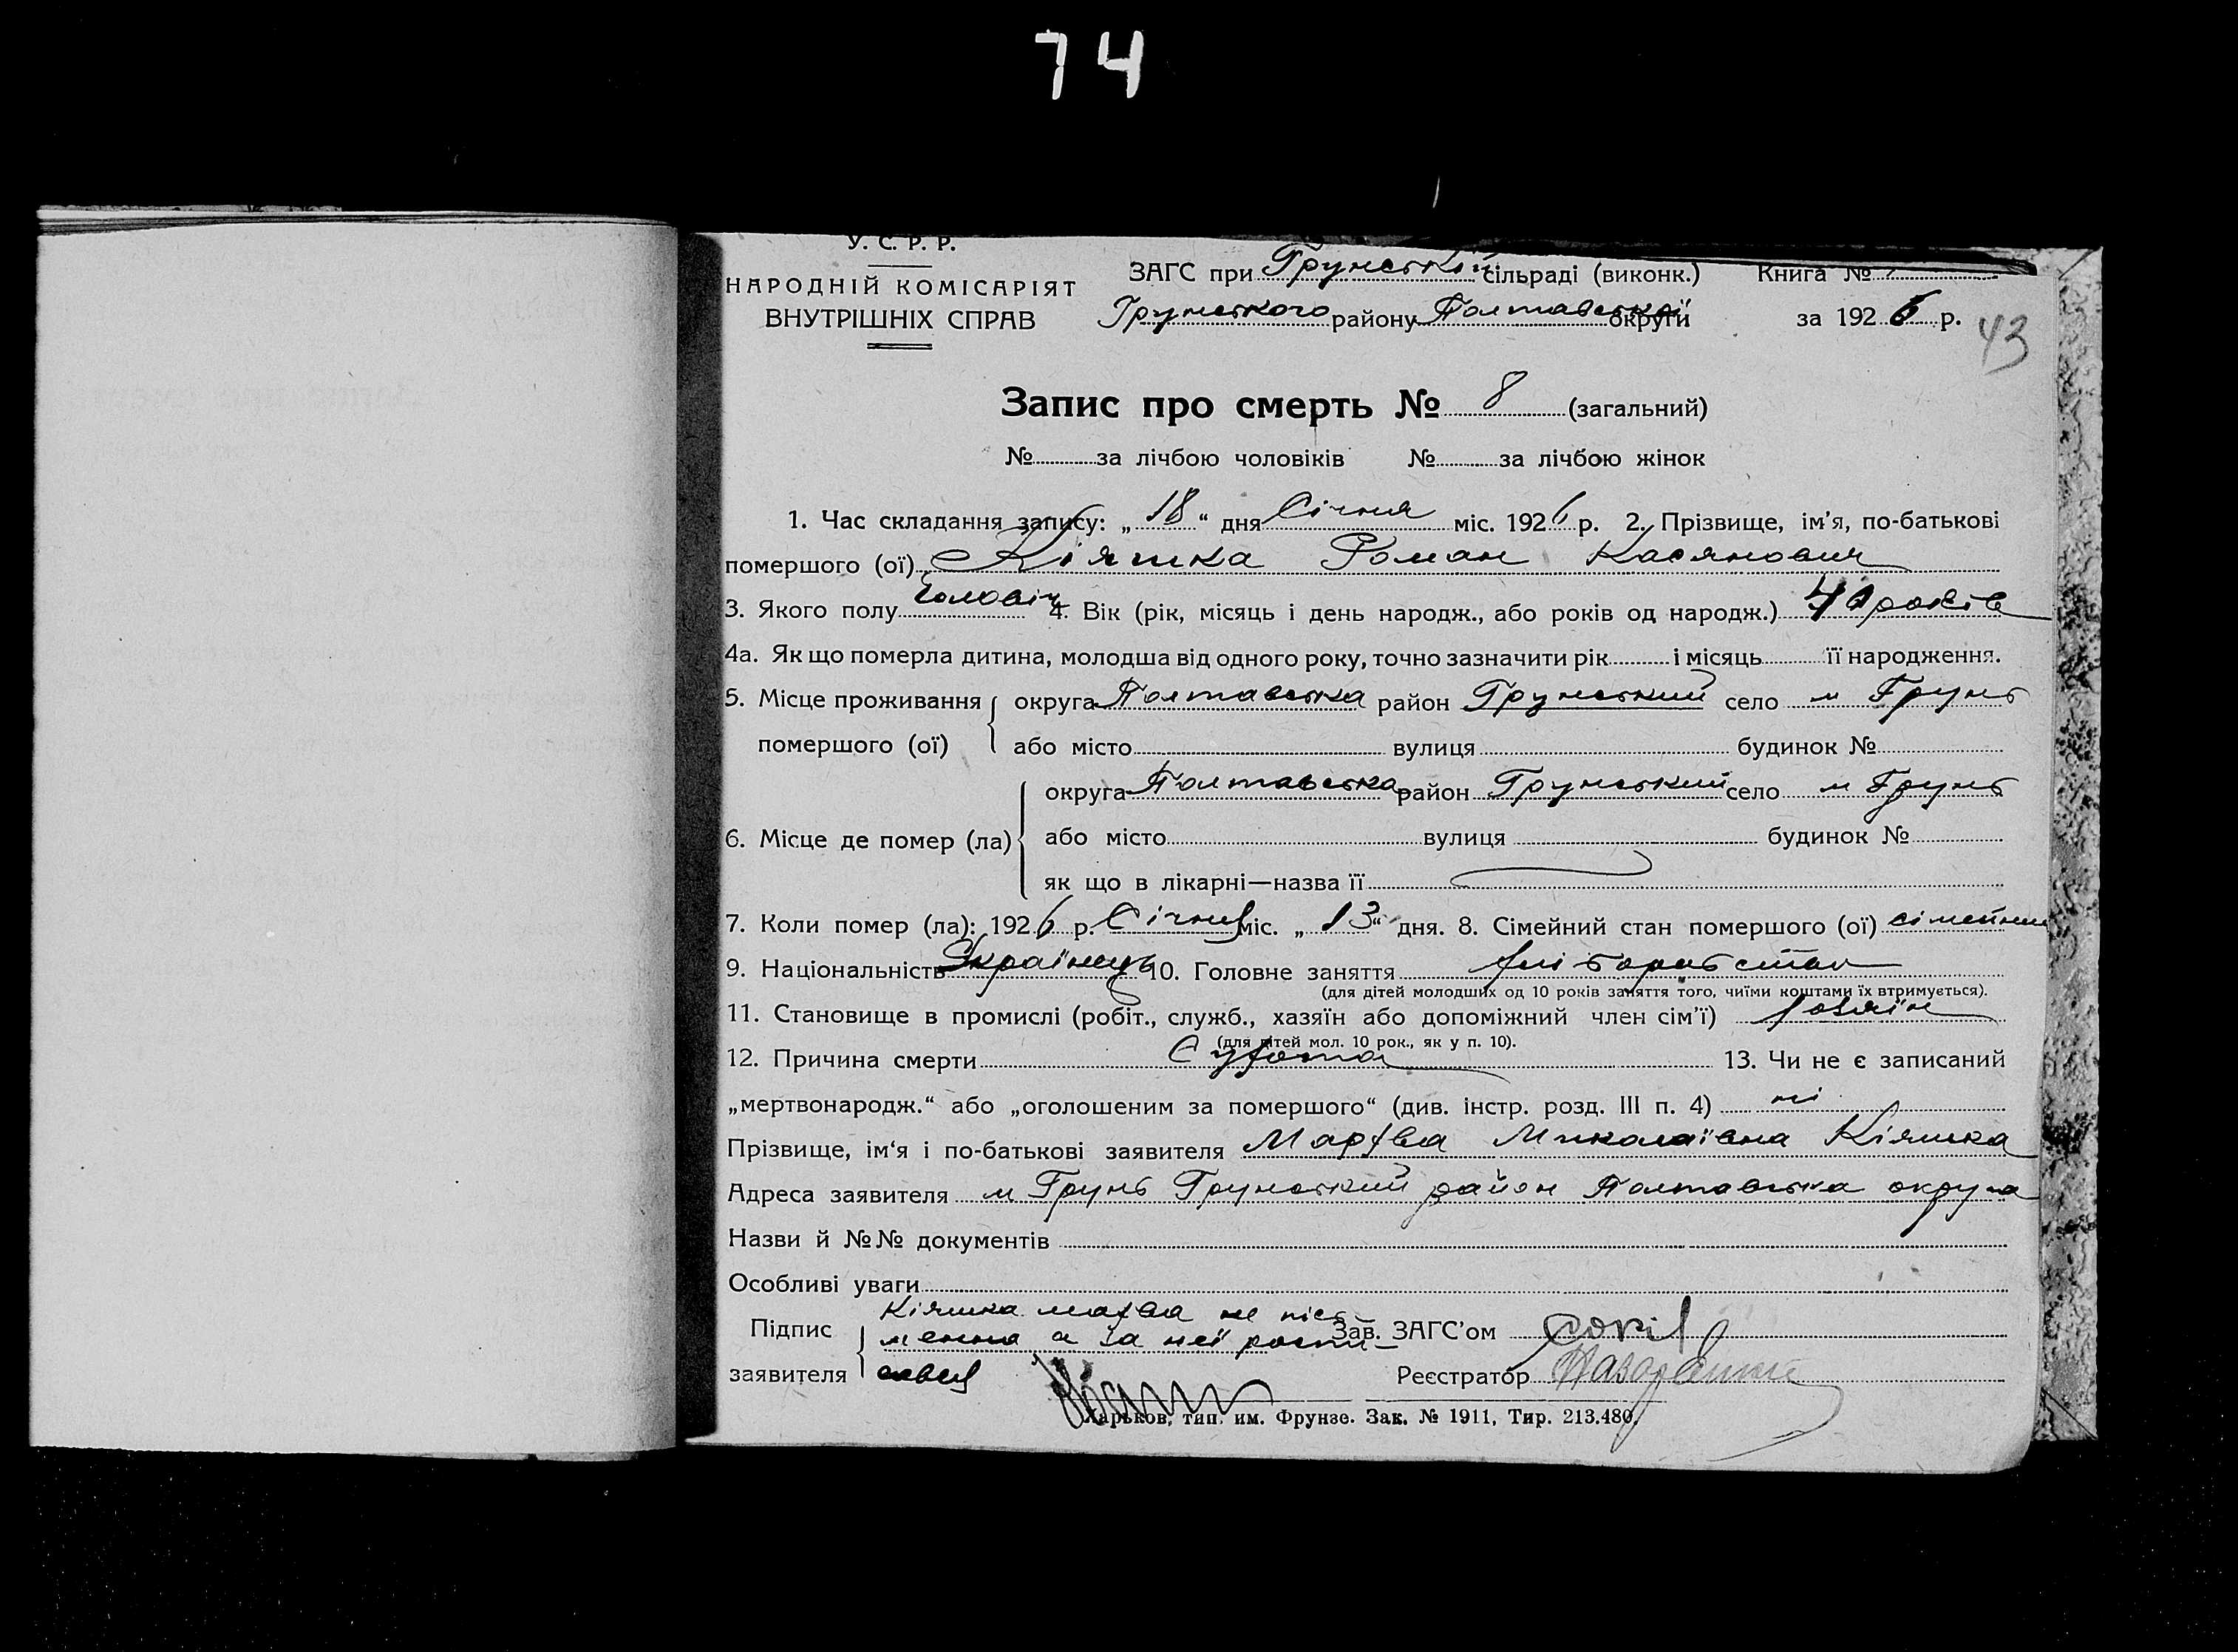 74
У. С. Р. Р.
НАРОДНІЙ КОМІСАРІЯТ
ВНУТРІШНІХ СПРАВ
ЗАГС при Грунській сільраді (виконк.) Книга №
Грунського району Полтавської округи за 1926 р.
43
Запис про смерть № 8 (загальний)
№ за лічбою чоловіків № за лічбою жінок
1. Час складання запису: „18“ дня Січня міс. 1926 р. 2. Прізвище, ім’я, по-батькові
помершого (ої) Кіяшка Роман Касянович
3. Якого полу чоловіч 4. Вік (рік, місяць і день народж., або років од народж.) років
4а. Як що померла дитина, молодша від одного року, точно зазначити рік і місяць її народження.
5. Місце проживання округа Полтавська район Грунський село м Грунь
помершого (ої) або місто вулиця будинок №
округа Полтавська район Грунський село м Грунь
6. Місце де помер (ла) або місто вулиця будинок №
як що в лікарні—назва її
7. Коли помер (ла): 1926 р. Січня міс. „13“ дня. 8. Сімейний стан помершого (ої) сімейний
9. Національність Українець 10. Головне заняття хліборобство
(для дітей молодших од 10 років заняття того, чиїми коштами їх втримується).
11. Становище в промислі (робіт., служб., хазяїн або допоміжний член сім’ї) хозяїн
(для дітей мол. 10 рок., як у п. 10).
12. Причина смерти Сухота 13. Чи не є записаний
„мертвонародж.“ або „оголошеним за помершого“ (див. інстр. розд. III п. 4) ні
Прізвище, ім‘я і по-батькові заявителя Марфва Миколаївна Кіяшка
Адреса заявителя м Грунь Грунський район Полтавська округа
Назви й №№ документів
Особливі уваги
Кіяшка Марфва не пісь
Підпис менна а за неї роспи- Зав. ЗАГС’ом
заявителя савсь Реєстратор
Харьков, тип. им. Фрунзе. Зак. № 1911, Тир. 213.480.